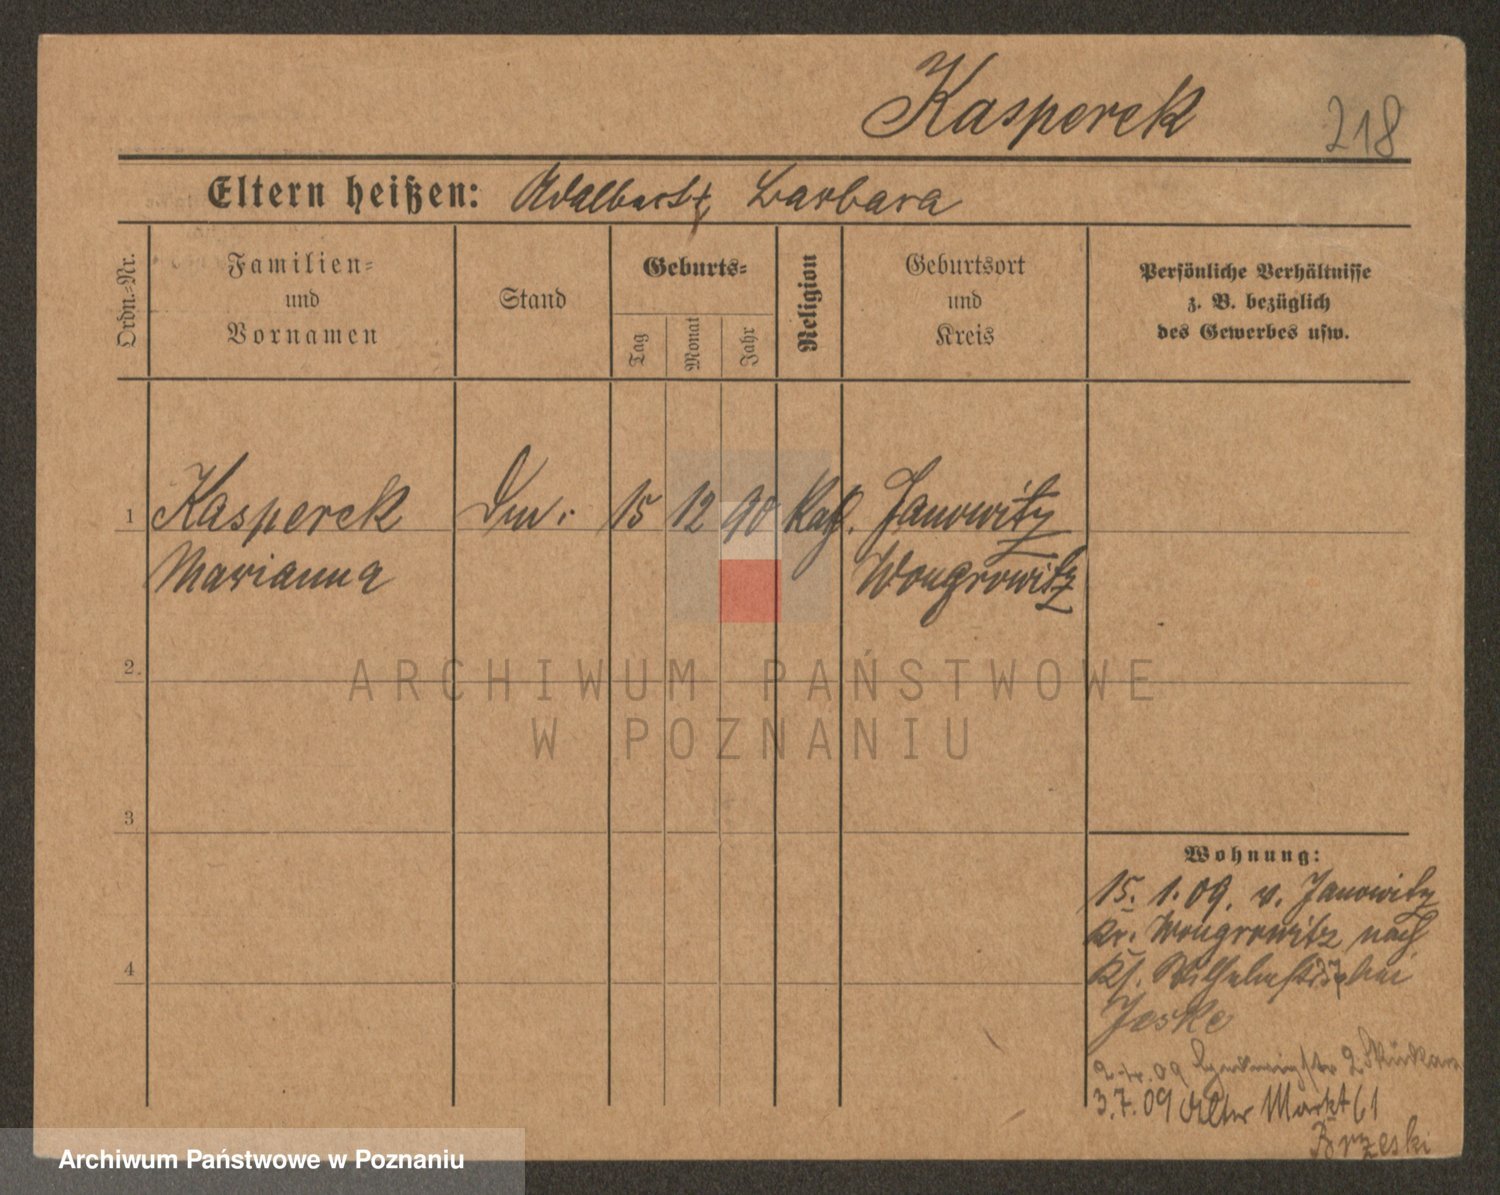 Kasperek 218
Eltern heißen: Adalbert, Barbara
Ordn.-Nr.
Familien-
und
Vornamen
Stand
Geburts-
Tag
Monat
Jahr
Religion
Geburtsort
und
Kreis
Persönliche Verhältnisse
z. B. bezüglich
des Gewerbes usw.
1 Kasperek 15 12 90 Kath. Janowitz
Marianna Wongrowitz
2.
3
4
Wohnung:
15. 1. 09. v. Janowitz
Kr. Wongrowitz nach
bei
Jeske
3.7.09 Alter Markt 61
Brzeski
ARCHIWUM PAŃSTWOWE
W POZNANIU
Archiwum Państwowe w Poznaniu